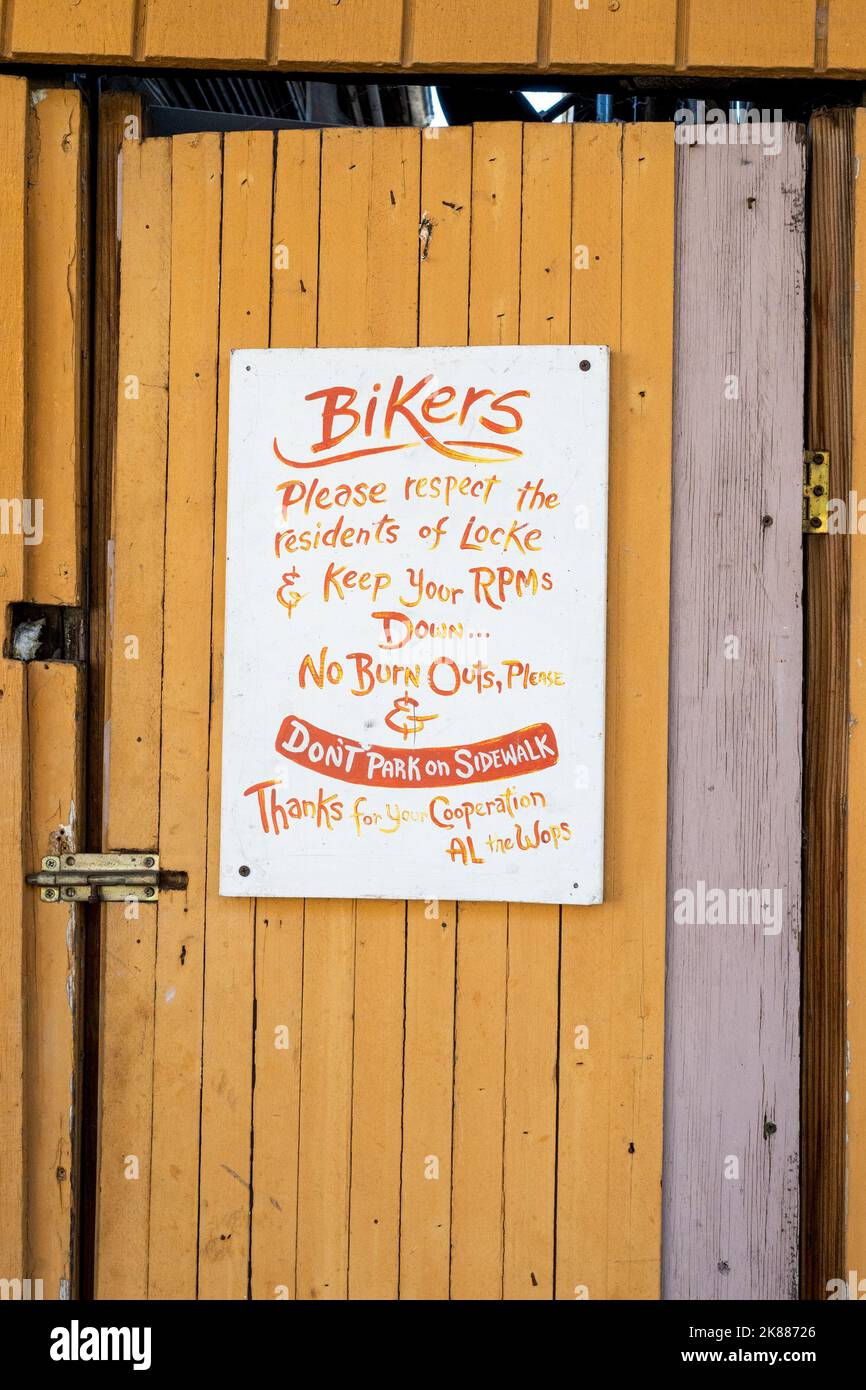 Bikers
Please respect the
residents of Locke
& Keep Your RPMs
Down...
No Burn Outs, Please
&
Don't Park on Sidewalk
Thanks for Your Cooperation
AL the Wops
alamy
Image ID: 2K88726
www.alamy.com